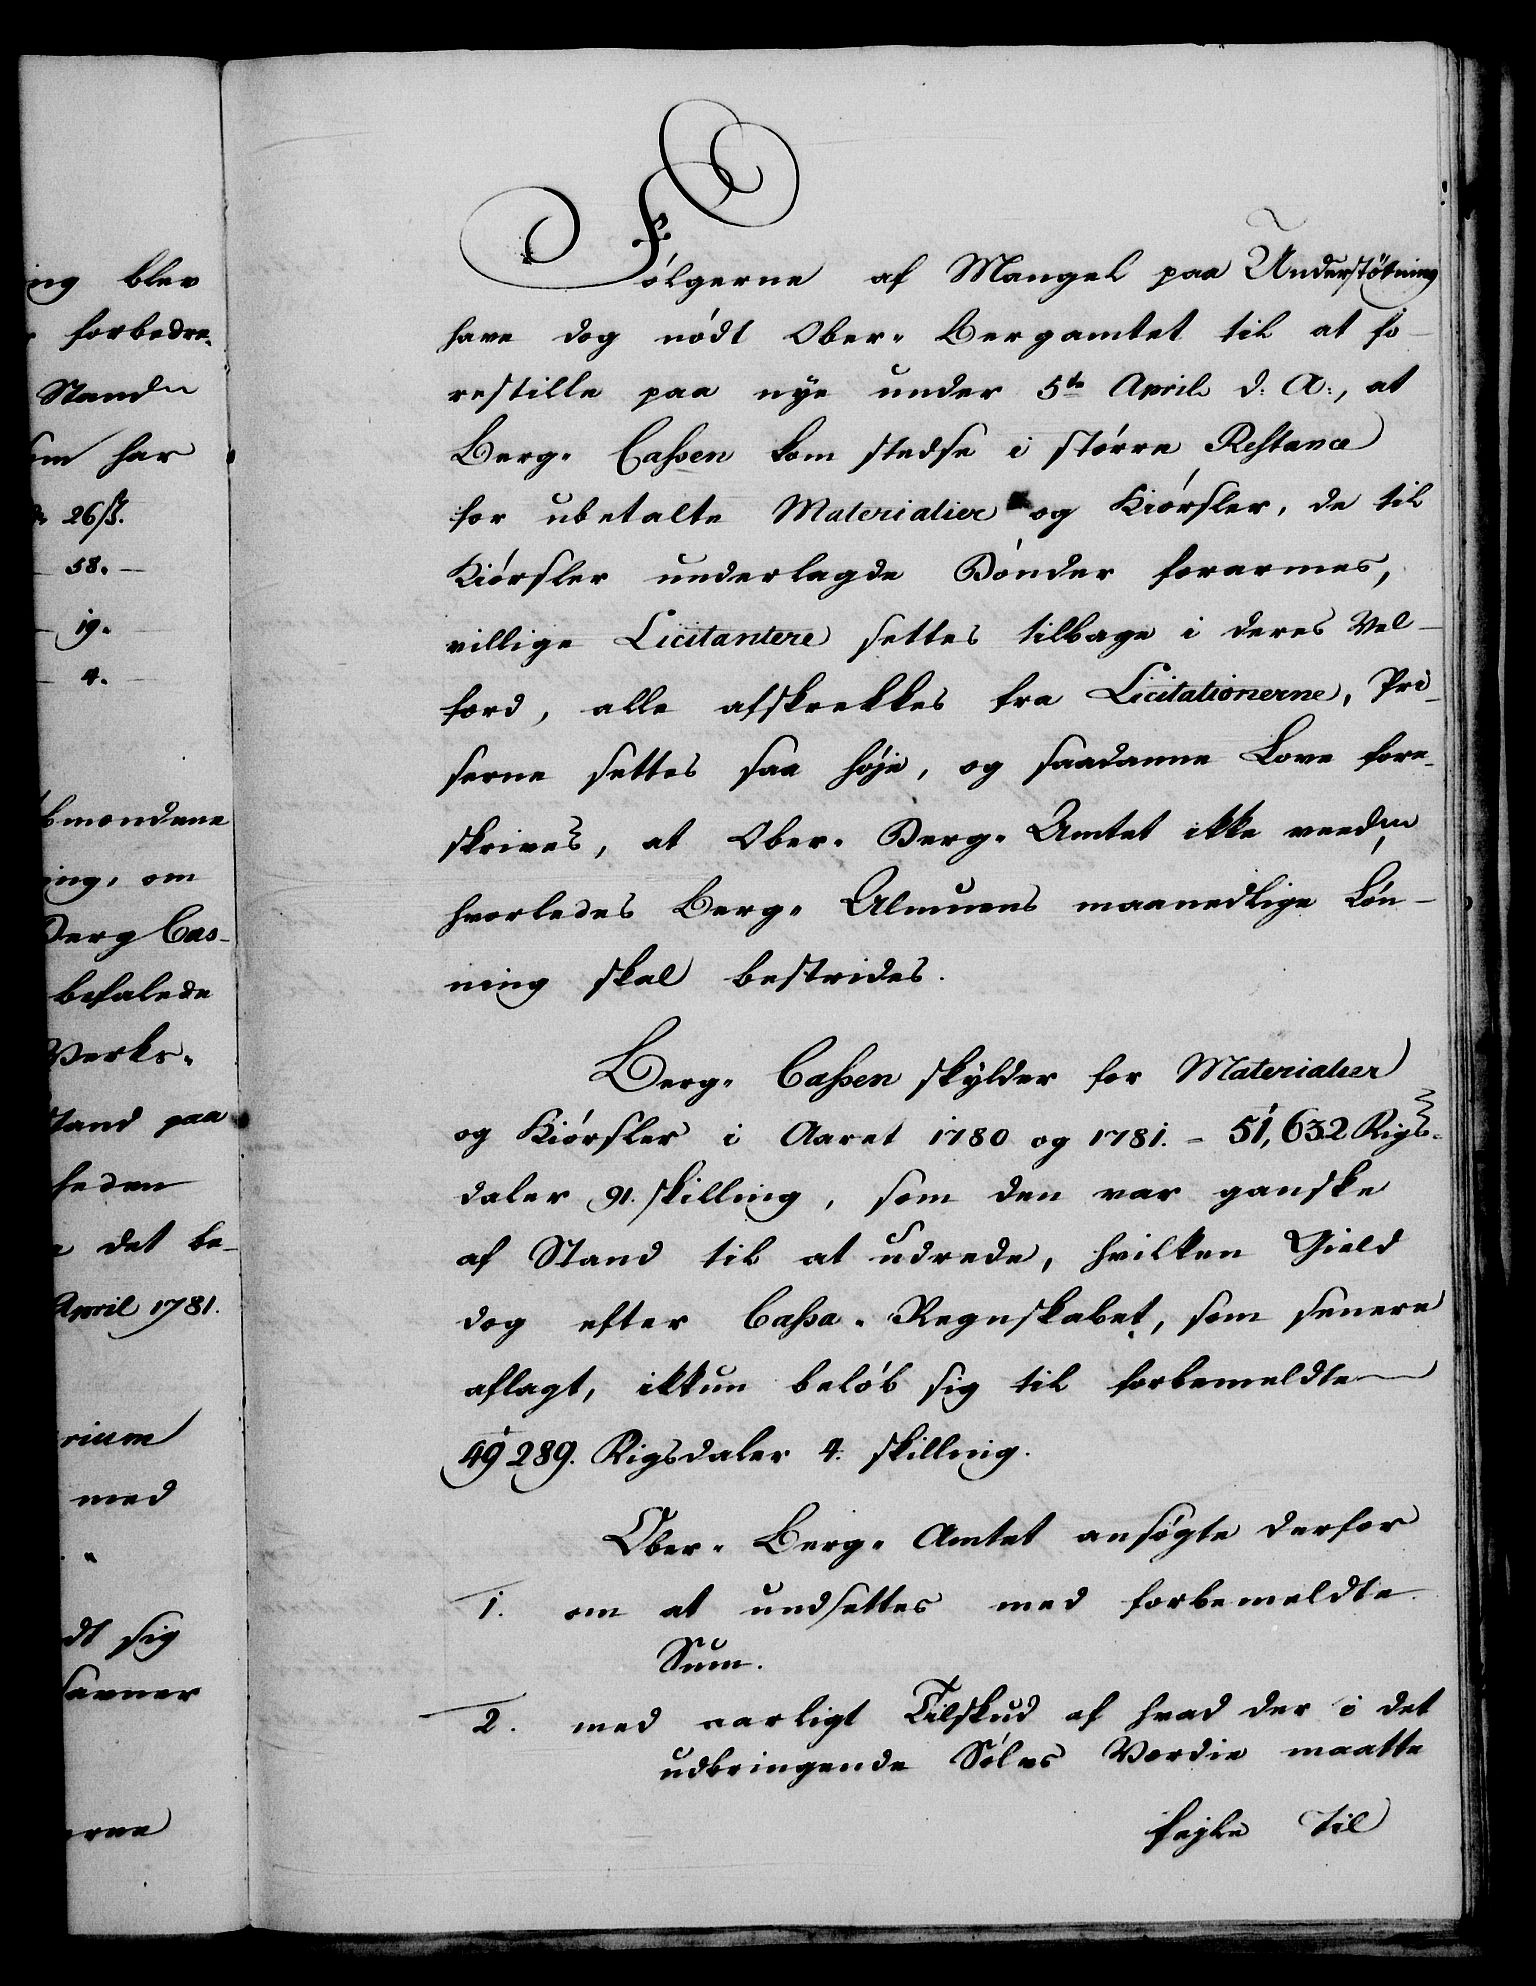 ing blev
forbedre-
Stand
har
26 ß.
58.
19.
4.
ing, om
Berg Cas-
befalede
Verks-
stand paa
heden
det be-
April 1781.
rium
med
dt sig
savner
erne
Følgerne af Mangel paa Understøtning
have dog nödt Ober- Bergamtet til at fo-
restille paa nye under 5te April d: A:, at
Berg- Cassen kom stedse i større Restance
for ubetalte Materialier og Kiørsler, de til
Kiørsler underlagde Bønder forarmes,
villige Licitantere settes tilbage i deres Vel-
ferd, alle afskrekkes fra Licitationerne, Pri-
serne settes saa høje, og saadanne Love fore-
skrives, at Ober- Berg- Amtet ikke veed,
hvorledes Berg- Almuens maanedlige Løn-
ning skal bestrides.
Berg- Cassen skylder for Materialier
og Kiørsler i Aaret 1780 og 1781. - 51,632 Rigs-
daler 91. skilling, som den var ganske
af Stand til at udrede, hvilken Gield
dog efter Cassa- Regnskabet, som senere
aflagt, ikkun beløb sig til forbemeldte
49289. Rigsdaler 4. skilling.
Ober- Berg- Amtet ansøgte derfor
1. om at undsettes med forbemeldte
Sum.
2. med aarligt Tilskud af hvad der i det
udbringende Sølvs Værdie maatte
fejle til